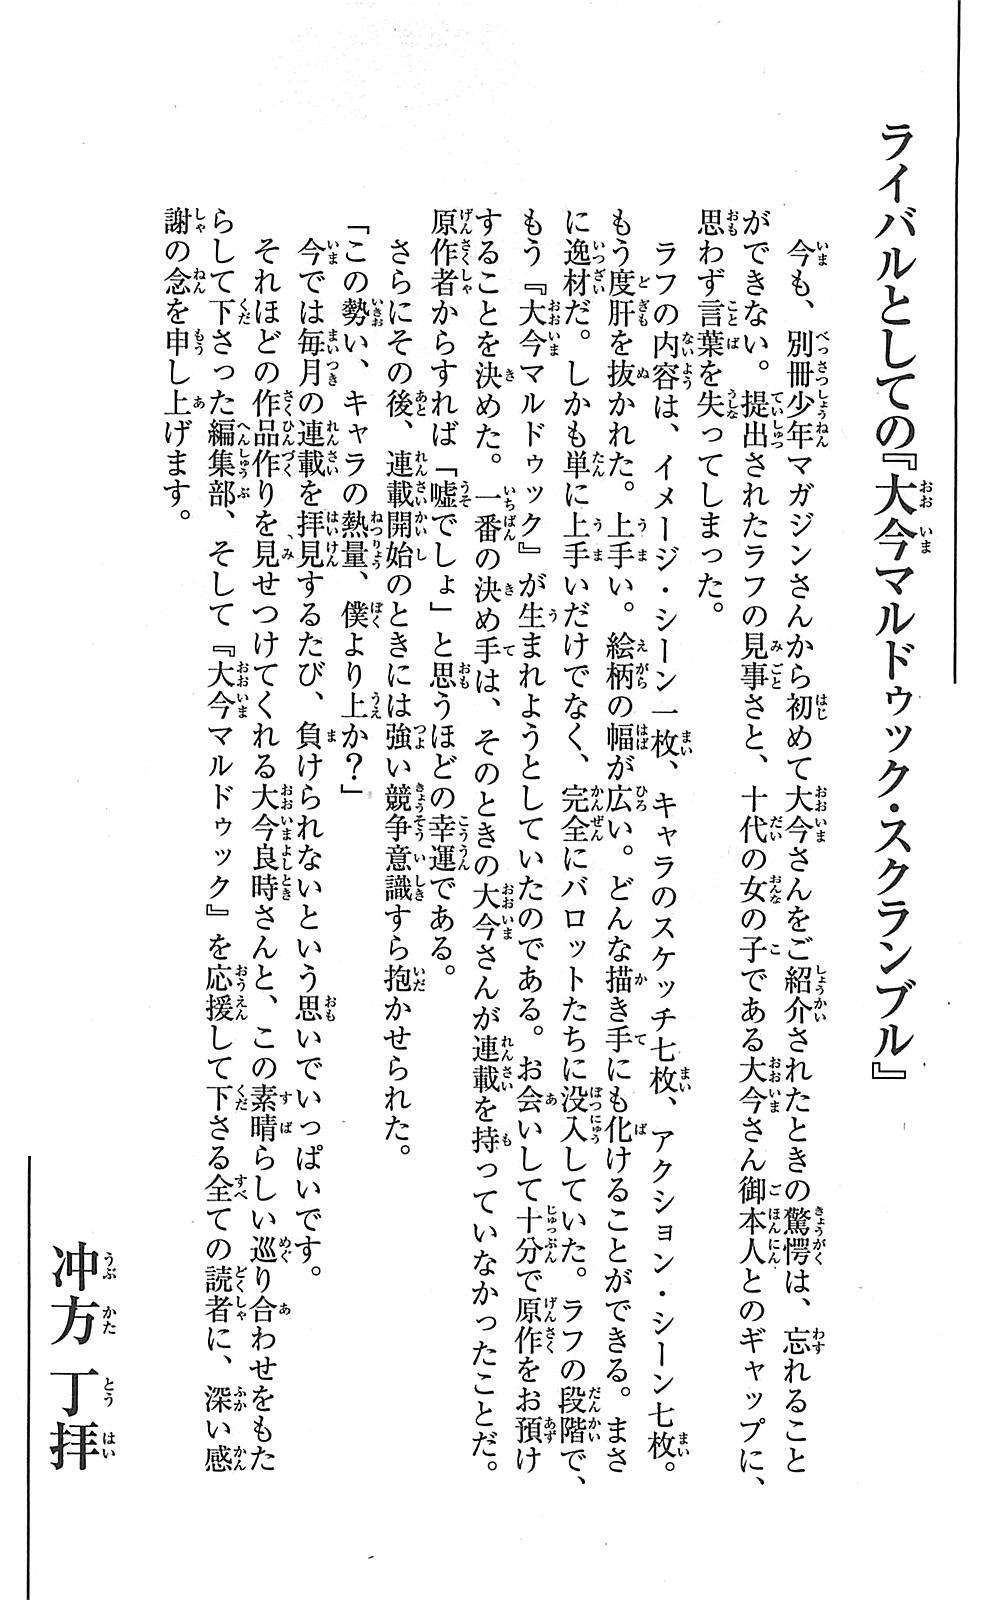 ライバルとしての『大今マルドゥック・スクランブル』
今も、別冊少年マガジンさんから初めて大今さんをご紹介されたときの驚愕は、忘れること
ができない。提出されたラフの見事さと、十代の女の子である大今さん御本人とのギャップに、
思わず言葉を失ってしまった。
ラフの内容は、イメージ・シーン一枚、キャラのスケッチ七枚、アクション・シーン七枚。
もう度肝を抜かれた。上手い。絵柄の幅が広い。どんな描き手にも化けることができる。まさ
に逸材だ。しかも単に上手いだけでなく、完全にバロットたちに没入していた。ラフの段階で、
もう『大今マルドゥック』が生まれようとしていたのである。お会いして十分で原作をお預け
することを決めた。一番の決め手は、そのときの大今さんが連載を持っていなかったことだ。
原作者からすれば「嘘でしょ」と思うほどの幸運である。
さらにその後、連載開始のときには強い競争意識すら抱かせられた。
「この勢い、キャラの熱量、僕より上か？」
今では毎月の連載を拝見するたび、負けられないという思いでいっぱいです。
それほどの作品作りを見せつけてくれる大今良時さんと、この素晴らしい巡り合わせをもた
らして下さった編集部、そして『大今マルドゥック』を応援して下さる全ての読者に、深い感
謝の念を申し上げます。
冲方 丁 拝